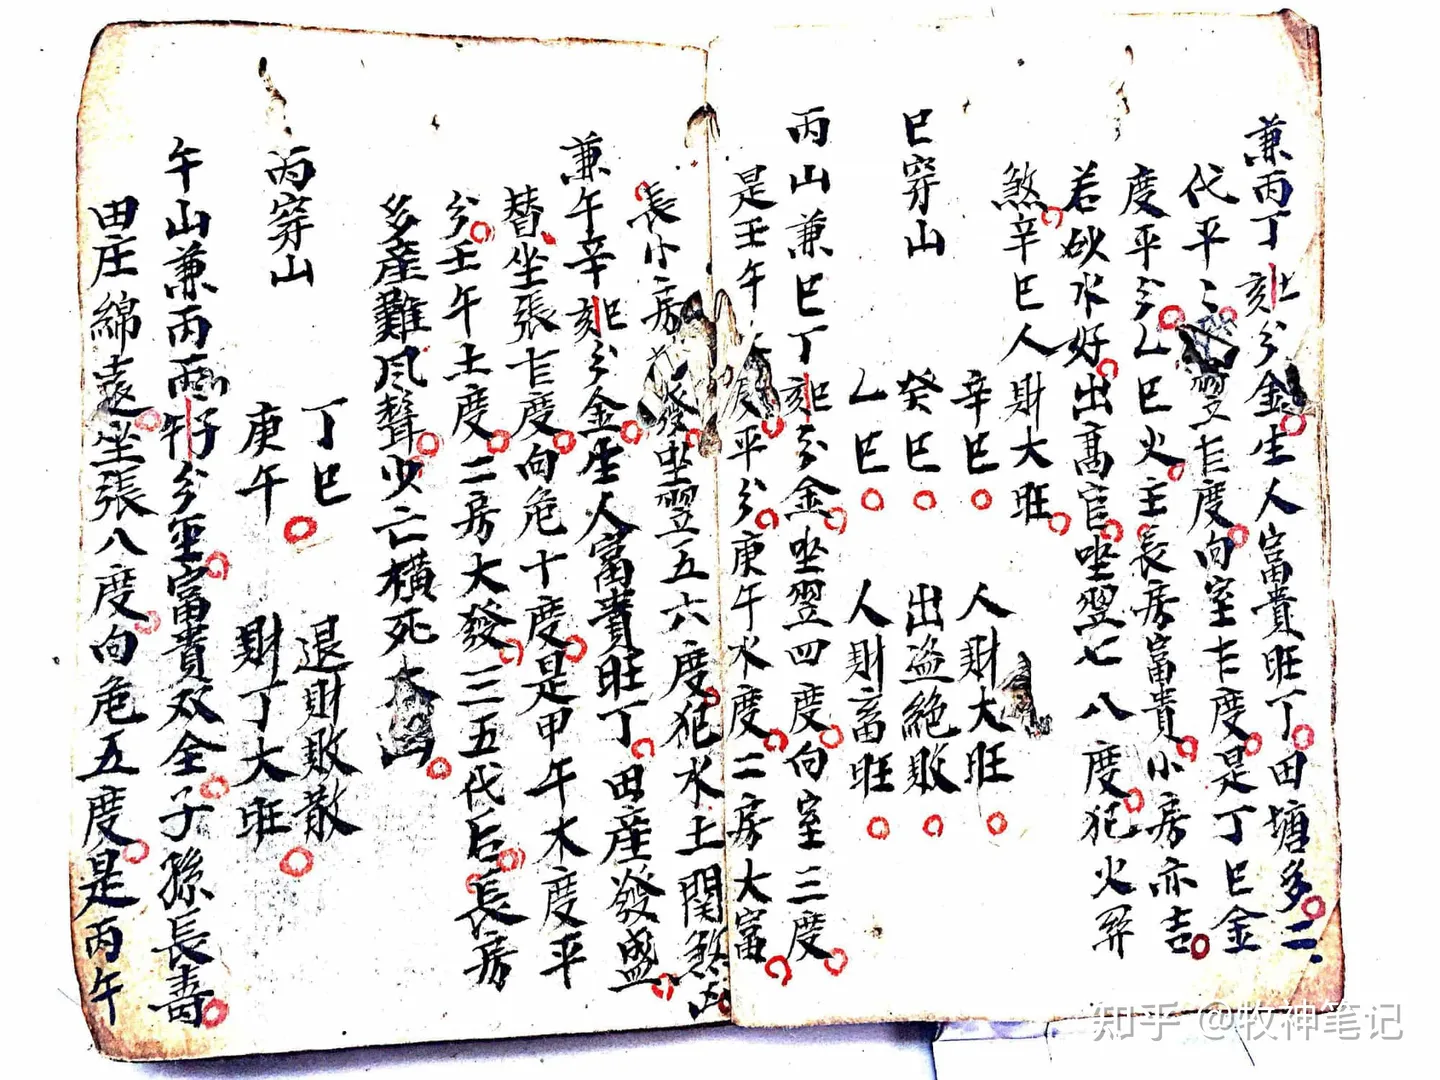 兼丙丁刻巳分金生人富貴旺丁田塘多二
代平坐翌七度向室七度是丁巳金
度平分乙巳火主長房富貴小房亦吉
若砍水好出髙官坐翌七八度犯火羿
煞辛巳人財大旺
辛巳 人財大旺
巳穿山 癸巳 出盗絶敗
乙巳 人財畜旺
丙山兼巳丁刻巳分金坐翌四度向室三度
是壬午 度平分庚午水度二房大富
長小二房 發坐翌五六度犯水土関煞凶
兼午辛刻巳分金生人富貴旺丁田產發盛
替坐張七度向危十度是甲午木度平
分壬午土度二房大發三五代后長房
多產難风聲少亡橫死大凶
丁巳 退財敗散
丙穿山 庚午 財丁大旺
午山兼丙丙子分金富貴双全子孫長壽
田庄綿遠坐張八度向危五度是丙午
知乎 @牧神笔记